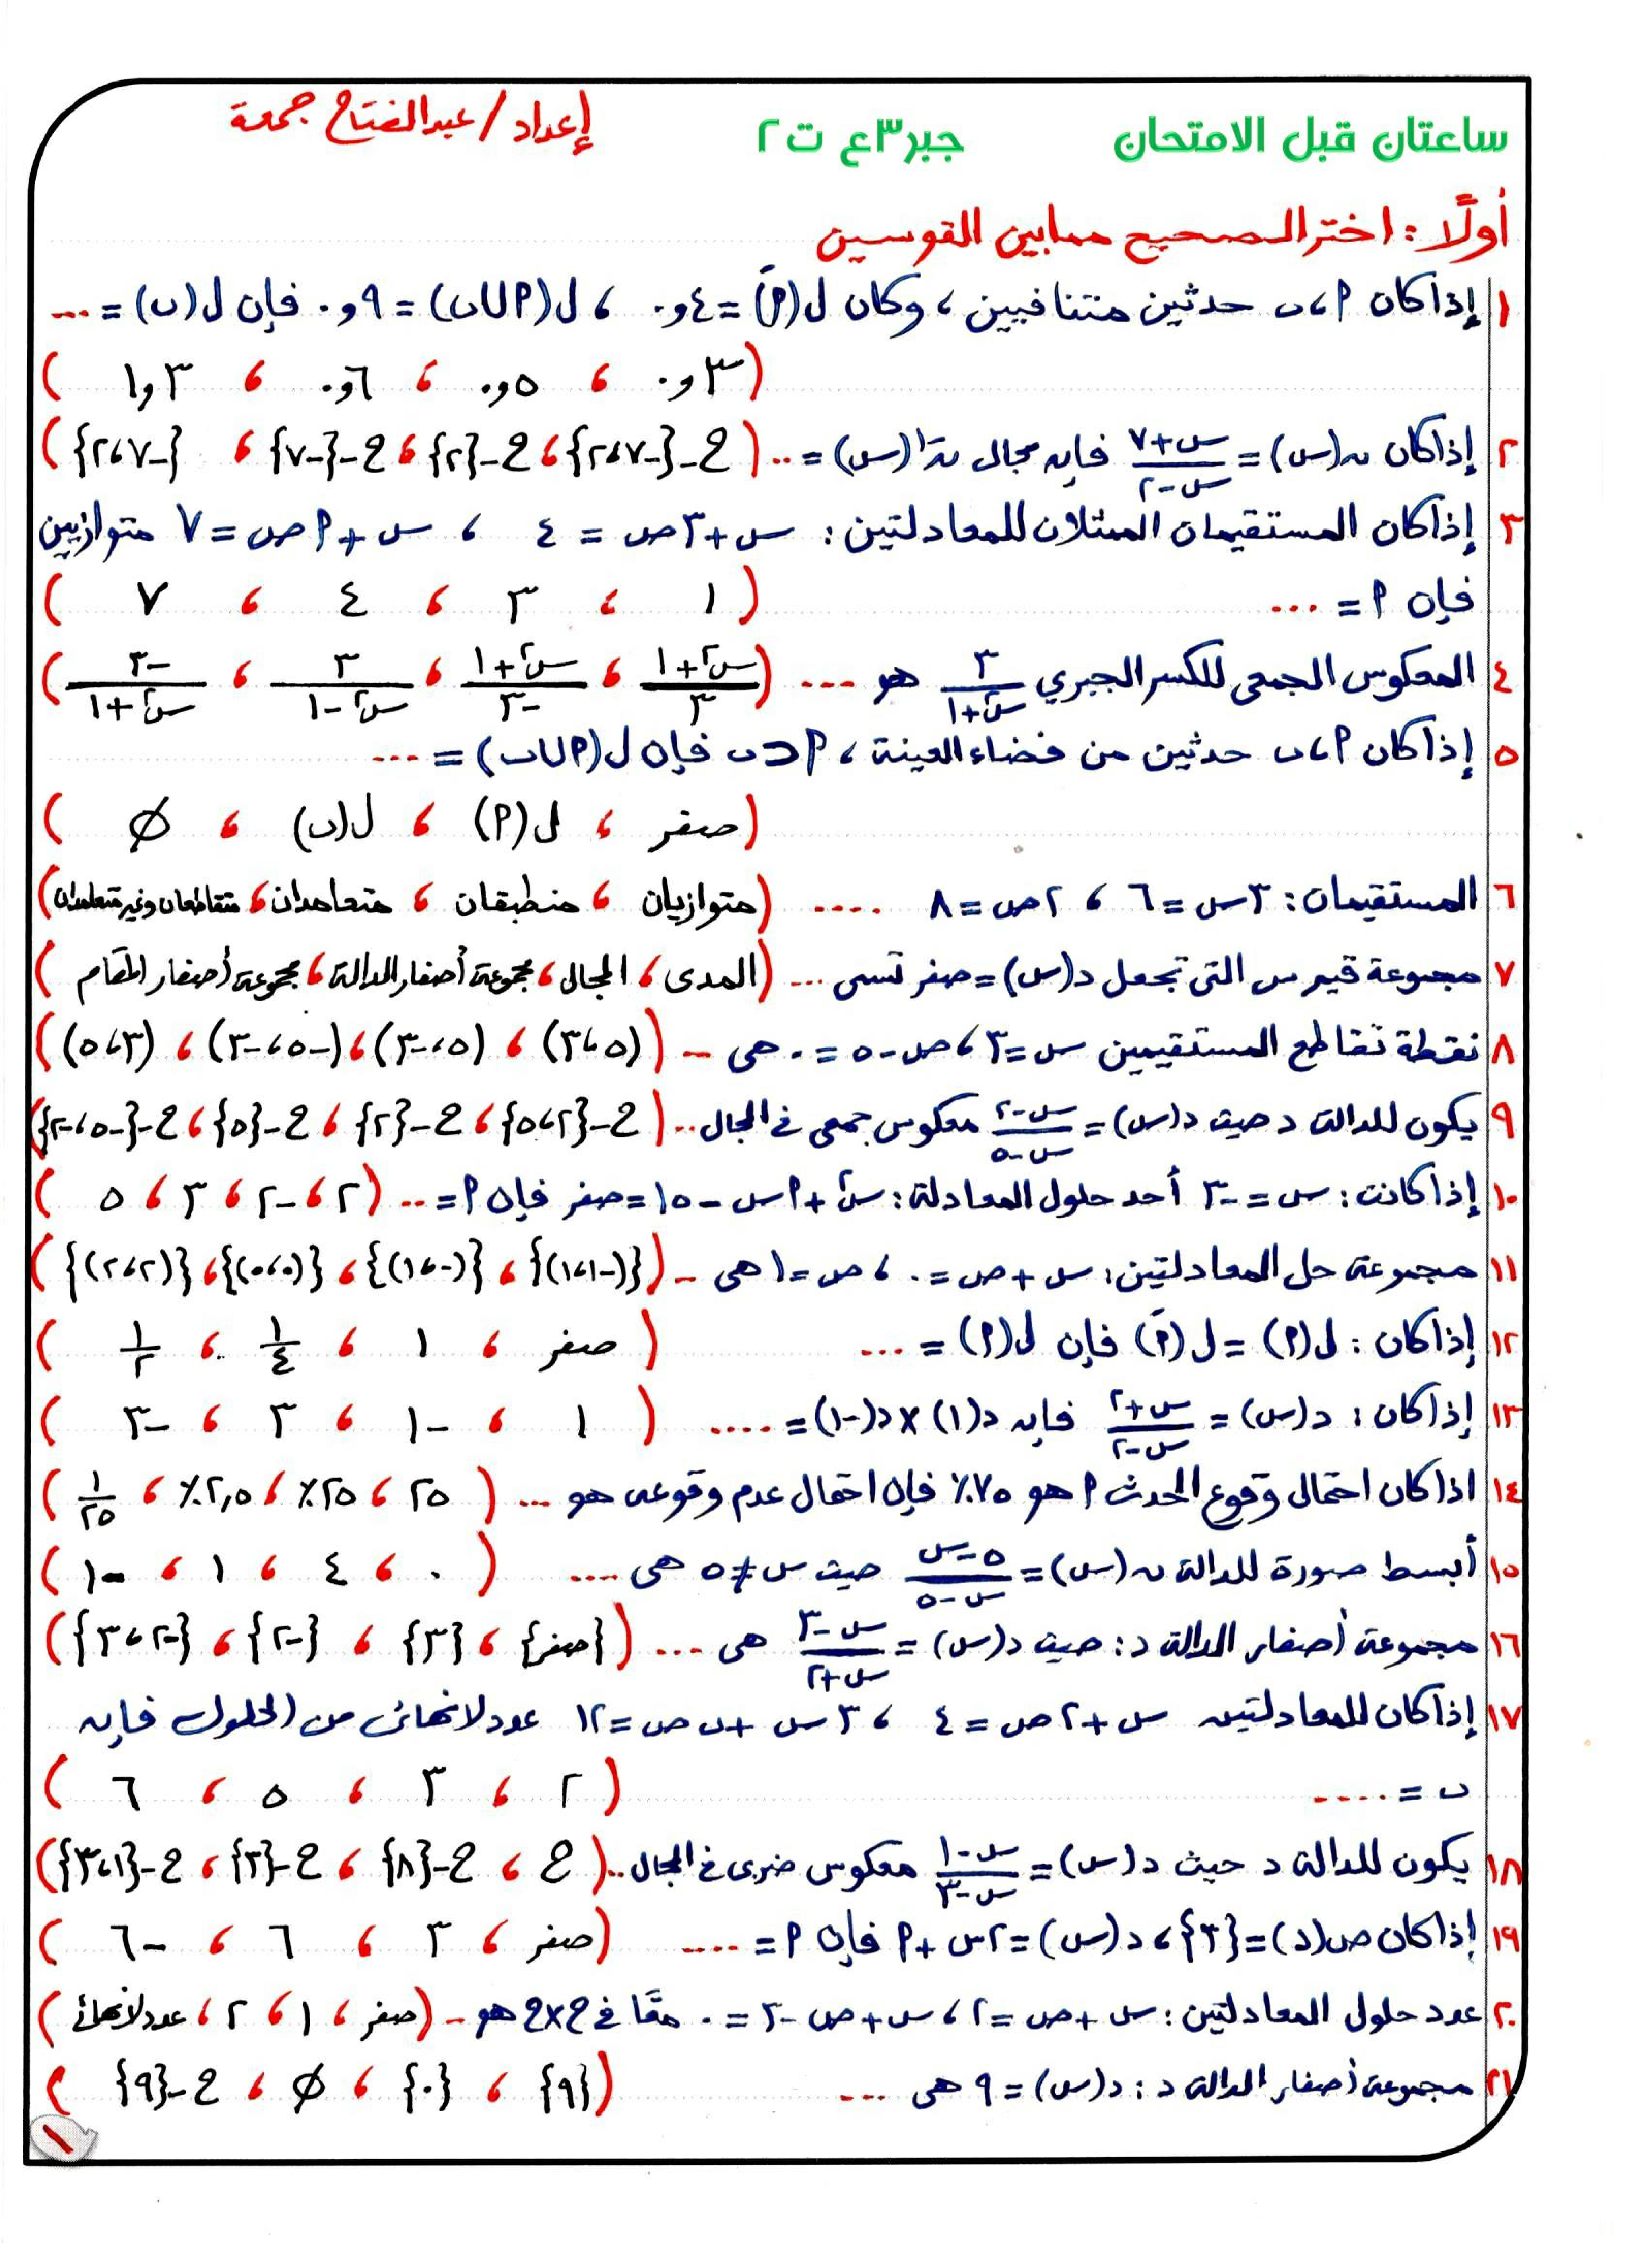 ساعتان قبل الامتحان جبر٣ع ت٢ إعداد/عبدالفتاح جمعة
أولًا: اختر الصحيح مما بين القوسين
١ إذا كان P، ب حدثين متنافيين، وكان ل(Pَ) = ٤و٠ ، ل(P∪ب) = ٩و٠ فإن ل(ب) = ...
(٣و٠ ، ٥و٠ ، ٦و٠ ، ٣و١)
٢ إذا كان ن(س) = (س+٧)/(س-٢) فإن مجال ن⁻¹(س) = .. (ح-{-٧،٢} ، ح-{٢} ، ح-{-٧} ، {-٧،٢})
٣ إذا كان المستقيمان الممثلان للمعادلتين: س+٣ص = ٤ ، س+Pص = ٧ متوازيين
فإن P = ... (١ ، ٣ ، ٤ ، ٧)
٤ المعكوس الجمعى للكسر الجبري ٣/(س²+١) هو ... ((س²+١)/٣ ، (س²+١)/-٣ ، ٣/(س²-١) ، -٣/(س²+١))
٥ إذا كان P، ب حدثين من فضاء العينة ، P⊂ب فإن ل(P∪ب) = ...
(صفر ، ل(P) ، ل(ب) ، ∅)
٦ المستقيمان: ٣س=٦ ، ٢ص=٨ .... (متوازيان ، منطبقان ، متعامدان ، متقاطعان وغير متعامدان)
٧ مجموعة قيم س التى تجعل د(س)=صفر تسمى ... (المدى ، المجال ، مجموعة أصفار الدالة ، مجموعة أصفار المقام)
٨ نقطة تقاطع المستقيمين س=٣ ، ص-٥=٠ هى - ((٥،٣) ، (٥،-٣) ، (-٥،-٣) ، (٣،٥))
٩ يكون للدالة د حيث د(س)=(س-٢)/(س-٥) معكوس جمعى فى المجال .. (ح-{٢،٥} ، ح-{٢} ، ح-{٥} ، ح-{-٥،-٢})
١٠ إذا كانت: س=-٣ أحد حلول المعادلة: س²+Pس-١٥=صفر فإن P=.. (٢ ، -٢ ، ٣ ، ٥)
١١ مجموعة حل المعادلتين: س+ص=٠ ، ص=١ هى - ({(١،-١)} ، {(-١،١)} ، {(٠،٠)} ، {(٢،٢)})
١٢ إذا كان: ل(P) = ل(Pَ) فإن ل(P) = ... (صفر ، ١ ، ١/٤ ، ١/٢)
١٣ إذا كان: د(س) = (س+٢)/(س-٢) فإن د(١)×د(-١)=.... (١ ، -١ ، ٣ ، -٣)
١٤ اذا كان احتمال وقوع الحدث P هو ٧٥٪ فإن احتمال عدم وقوعه هو ... (٢٥ ، ٢٥٪ ، ٢,٥٪ ، ١/٢٥)
١٥ أبسط صورة للدالة ن(س)=(٥-س)/(س-٥) حيث س≠٥ هى .... (٠ ، ٤ ، ١ ، -١)
١٦ مجموعة أصفار الدالة د: حيث د(س)=(س-٣)/(س+٢) هى ... ({صفر} ، {٣} ، {-٢} ، {-٢،٣})
١٧ إذا كان للمعادلتين س+٢ص=٤ ، ٣س+ب ص=١٢ عدد لانهائى من الحلول فإن
ب = .... (٢ ، ٣ ، ٥ ، ٦)
١٨ يكون للدالة د حيث د(س)=(س-١)/(س-٣) معكوس ضربى فى المجال .. (ح ، ح-{٨} ، ح-{٣} ، ح-{١،٣})
١٩ إذا كان ص(د)={٣} ، د(س)=٢س+P فإن P=.... (صفر ، ٣ ، ٦ ، -٦)
٢٠ عدد حلول المعادلتين: س+ص=٢ ، س+ص-٣=٠ معًا فى ح×ح هو - (صفر ، ١ ، ٢ ، عدد لانهائى)
٢١ مجموعة أصفار الدالة د: د(س)=٩ هى ... ({٩} ، {٠} ، ∅ ، ح-{٩})
١